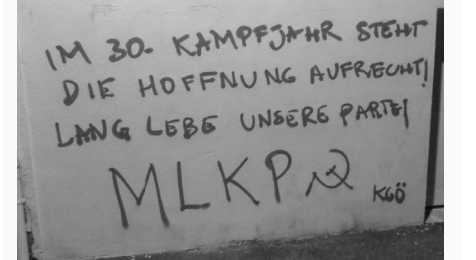 IM 30. KAMPFJAHR STEHT
DIE HOFFNUNG AUFRECHT!
LANG LEBE UNSERE PARTEI
MLKP ☭
KGÖ